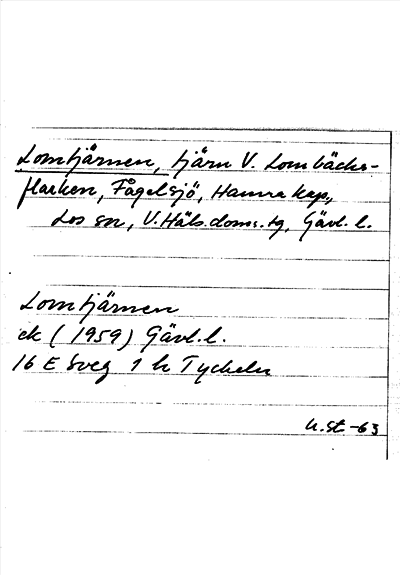 Lomtjärnen, tjärn V. Lombäcks-
flarken, Fågelsjö, Hamra kap.,
Los sn, V. Häls. doms. tg, Gävl. l.
Lomtjärnen
ek (1959) Gävl. l.
16 E Sveg 1 h Tyckeln
u.st.-63